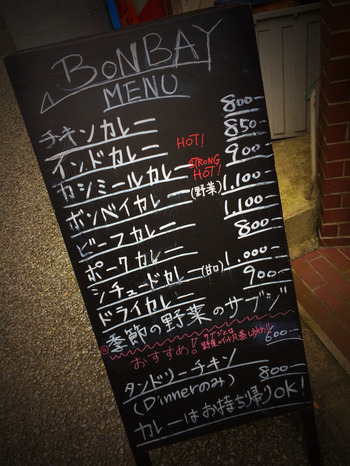 BONBAY
MENU
チキンカレー 800-
インドカレー HOT! 850-
カシミールカレー STRONG HOT! 900
ボンベイカレー (野菜) 1,100-
ビーフカレー 1,100-
ポークカレー 800-
シチュードカレー (甘口) 1,000-
ドライカレー 900-
季節の野菜のサブジ
おすすめ! 600-
タンドリーチキン
(Dinnerのみ) 800-
カレーはお持ち帰りOK!